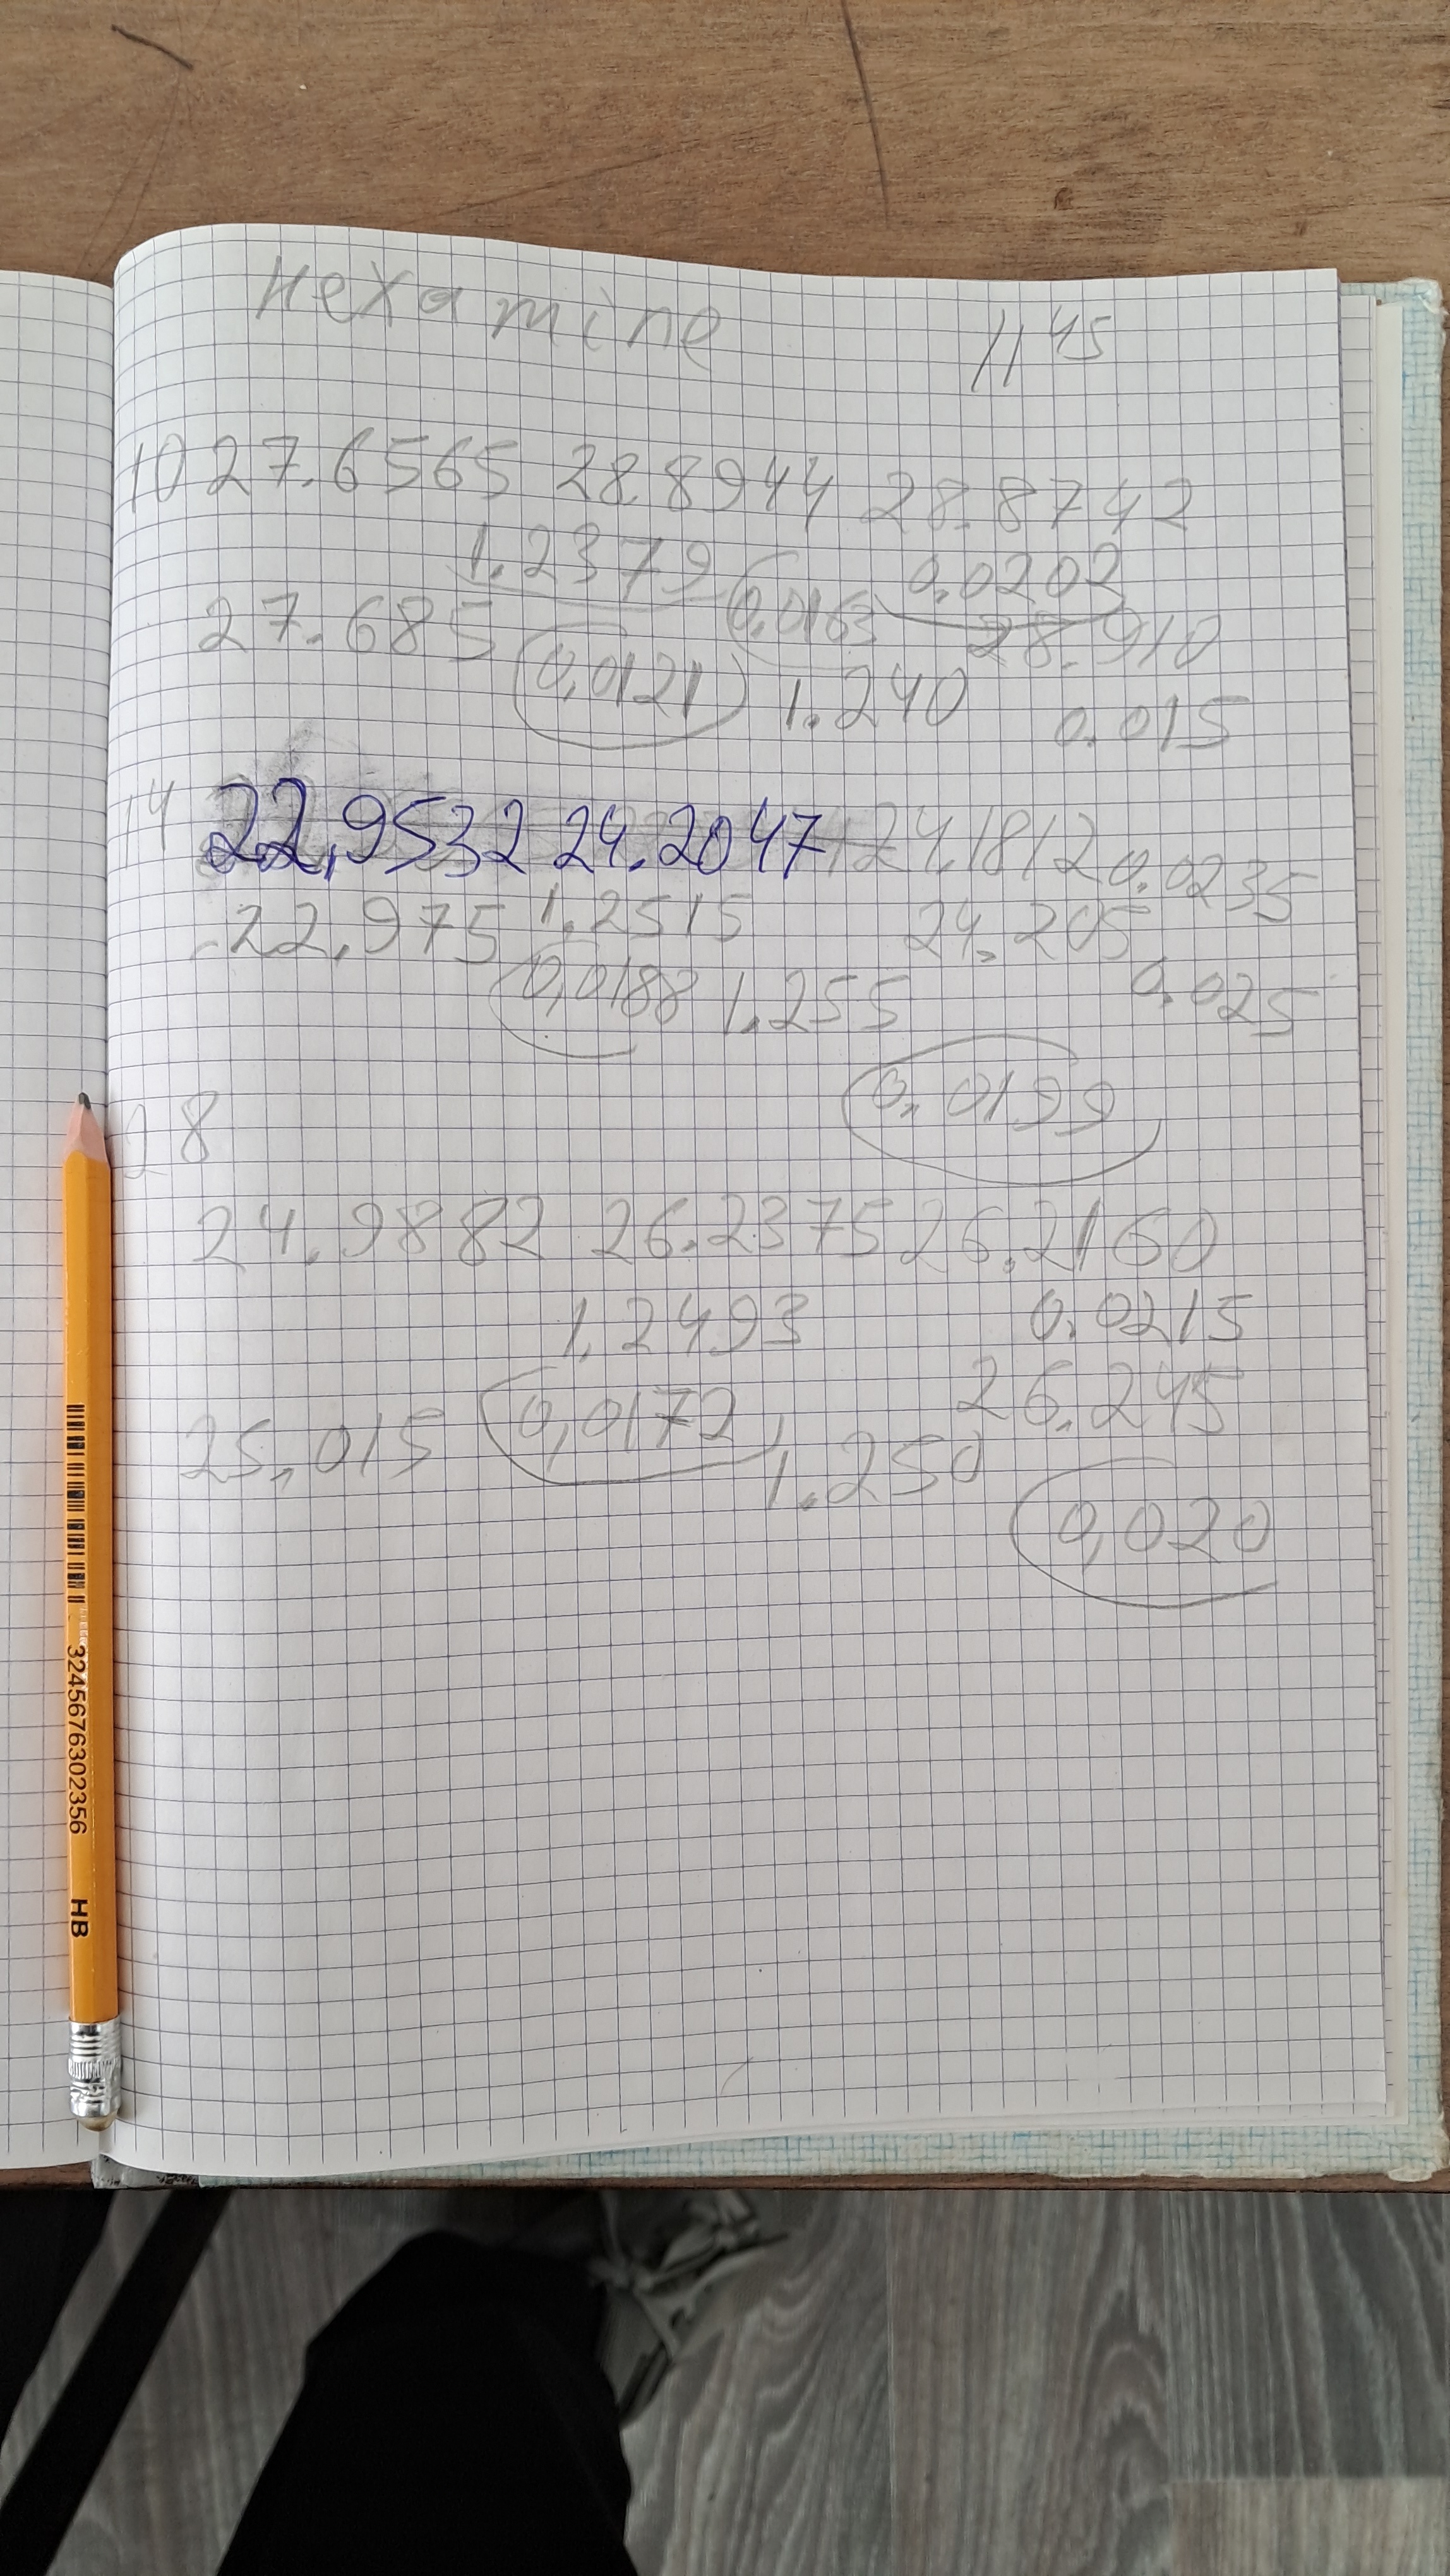 Hexamine 11 45
10 27.6565 28.8944 28.8742
1.2379 0.0202
27.685 0,0121 0,0163 28.910
1.240 0.015
14 22,9532 24.2047 24.1812 0.0235
22,975 1.2515 24.205
0,0188 1.255 0.025
0,0199
8
24.9882 26.2375 26.2160
1.2493 0.0215
25,015 0,0172 26.245
1.250
0,020
324567630 2356 HB